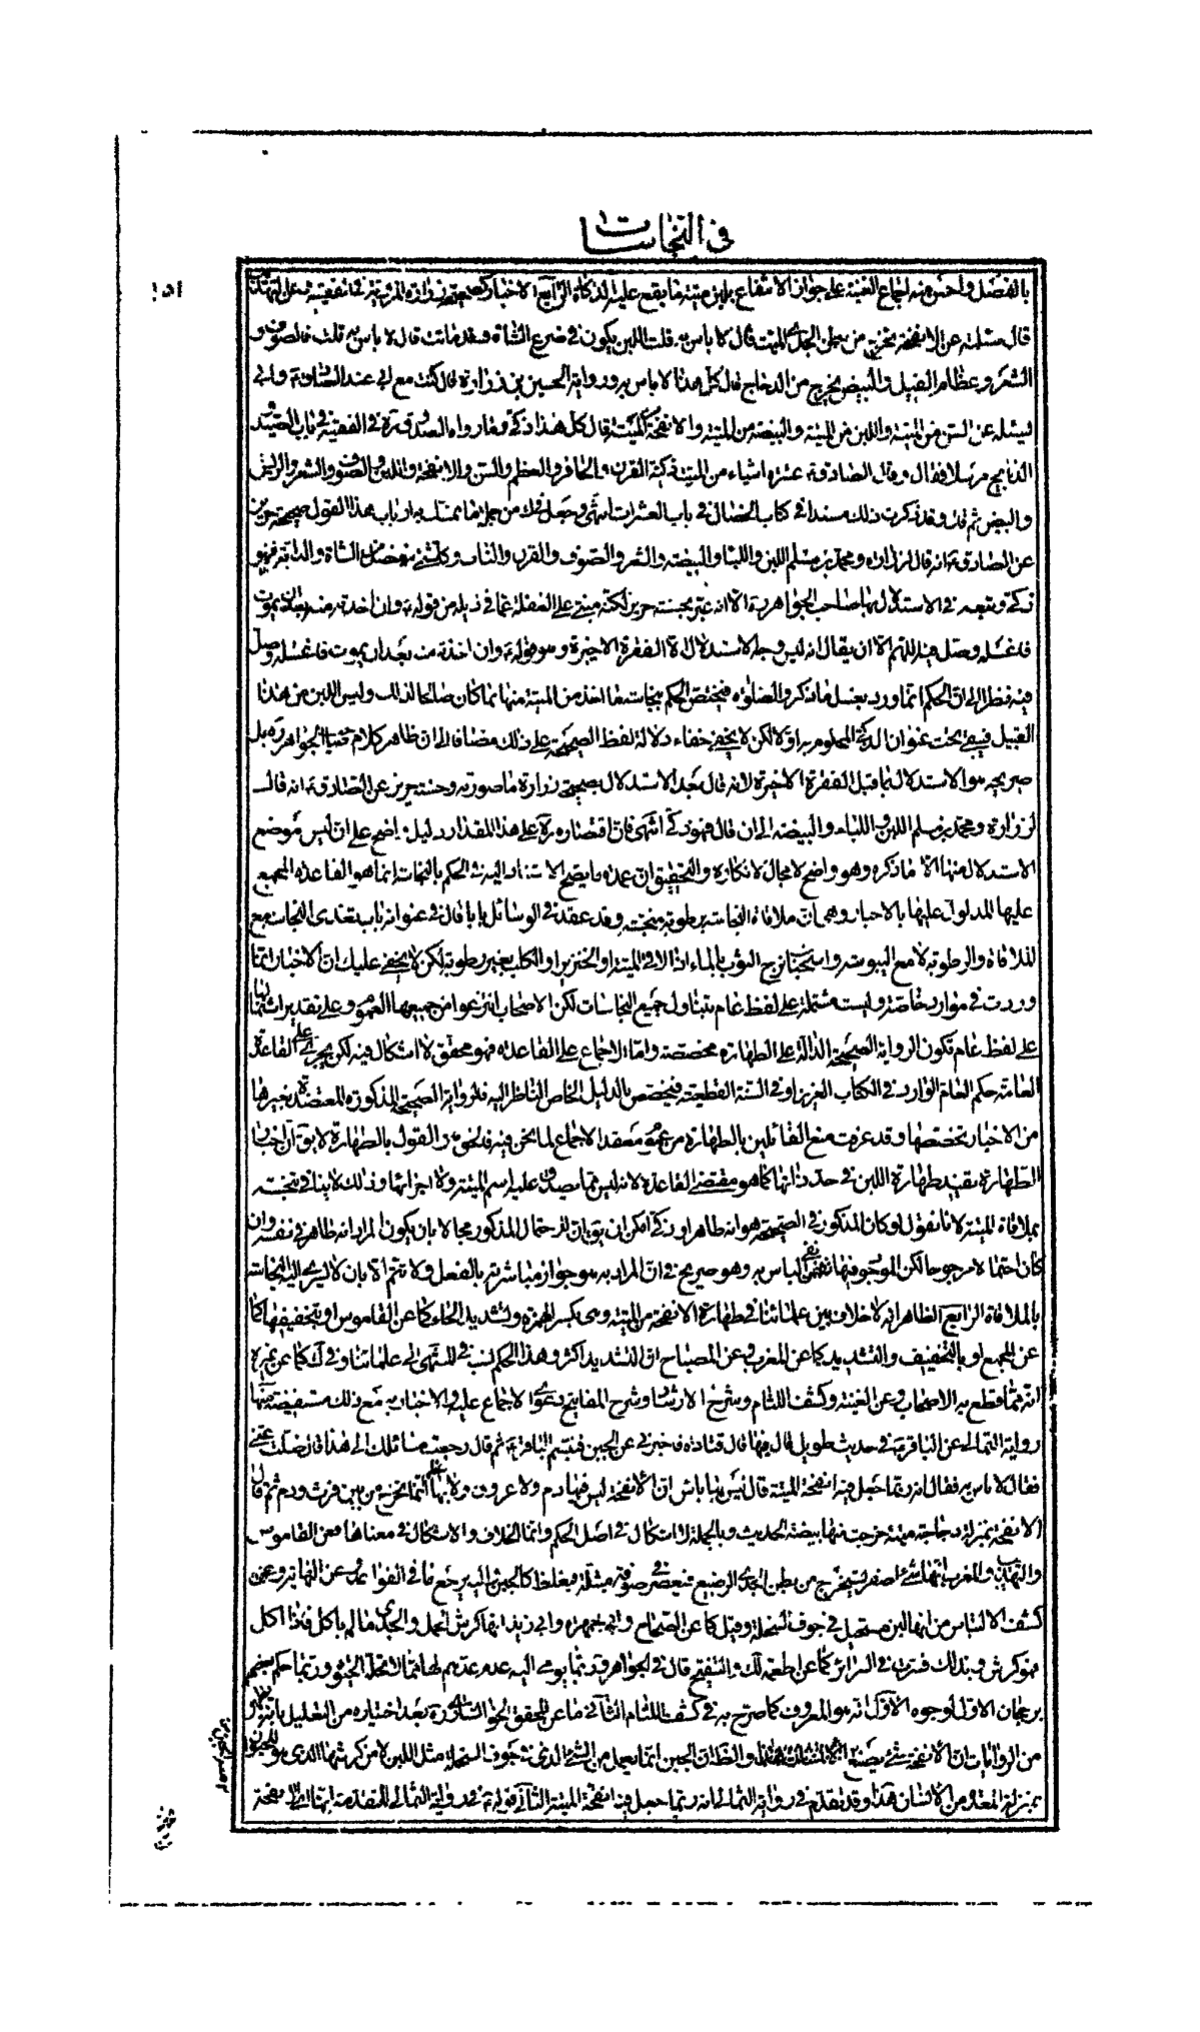 في النجاسات
١٥١
بالفصل واحسن منه اجماع الغنية على جواز الانتفاع بلبن ميتة ما يقع عليه الذكاة الرابع الاخبار كصحيحة زرارة المروية في الفقيه عن
قال سئلته عن الانفحة تخرج من بطن الجدى الميت قال لا باس به قلت اللبن يكون في ضرع الشاة وقد ماتت قال لا باس به قلت فالصوف و
الشعر وعظام الفيل والبيض يخرج من الدجاج قال كل هذا لا باس به ورواية الحسين بن زرارة قال كنت مع ابي عند الصادق ع وابي
يسئله عن السن من الميتة واللبن من الميتة والبيضة من الميتة والانفحة الميتة قال كل هذا ذكي وما رواه الصدوق ره في الفقيه في باب الصيد و
الذبايح مرسلا فقال وقال الصادق ع عشرة اشياء من الميتة ذكية القرن والحافر والعظم والسن والانفحة واللبن والصوف والشعر والريش
والبيض ثم قال وقد ذكرت ذلك مسندا في كتاب الخصال في باب العشرات انتهى وجعل في ذلك من جملة ما تمسك به ارباب هذا القول صحيحة حريز
عن الصادق ع انه قال لزرارة ومحمد بن مسلم اللبن واللباء والبيضة والشعر والصوف والقرن والناب وكل شئ يفصل من الشاة والدابة فهو
ذكي وتبعه في الاستدلال بها صاحب الجواهر ره الا انه عبر بحسنة حريز لكنه مبنى على الغفلة عما في ذيله من قوله ع وان اخذته منه بعد ان يموت
فاغسله وصل فيه اللهم الا ان يقال انه ليس وجه الاستدلال الا الفقرة الاخيرة وهو قوله ع وان اخذته منه بعد ان يموت فاغسله وصل
فيه نظرا الى ان الحكم انما ورد بغسل ما ذكر والصلوة فيختص الحكم بنجاسة ما اخذ من الميتة منها بما كان صالحا لذلك وليس اللبن من هذا
القبيل فيبقى تحت عنوان الذكي المحكوم به اولا لكن لا يخفى خفاء دلالة لفظ الصحيحة على ذلك مضافا الى ان ظاهر كلام صاحب الجواهر ره بل
صريحه هو الاستدلال بما قبل الفقرة الاخيرة لانه قال بعد الاستدلال بصحيحة زرارة ما صورته وحسنة حريز عن الصادق ع انه قال
لزرارة ومحمد بن مسلم اللبن واللباء والبيضة الى ان قال فهو ذكي انتهى فان اقتصاره ره على هذا المقدار دليل واضح على ان ليس موضع
الاستدلال منها الا ما ذكره وهو واضح لا مجال لانكاره والتحقيق ان عمدة ما يصح الاستناد اليه في الحكم بالنجاسة انما هو القاعدة المجمع
عليها المدلول عليها بالاخبار وهي ان ملاقاة النجاسة برطوبة منجسة وقد عقد في الوسائل بابا قال في عنوانه باب تعدى النجاسة مع
الملاقاة والرطوبة لا مع اليبوسة واستحباب نضح الثوب بالماء اذا لاقى الميتة او الخنزير او الكلب بغير رطوبة لكن لا يخفى عليك ان الاخبار انما
وردت في موارد خاصة وليست مشتملة على لفظ عام يتناول جميع النجاسات لكن الاصحاب انتزعوا من جميعها العموم وعلى تقدير اشتمالها
على لفظ عام تكون الرواية الصحيحة الدالة على الطهارة مخصصة واما الاجماع على القاعدة فهو محقق لا اشكال فيه لكن يجرى على القاعدة
العامة حكم العام الوارد في الكتاب العزيز او في السنة القطعية فيختص بالدليل الخاص الناظر اليه فالرواية الصحيحة المذكورة المعتضدة بغيرها
من الاخبار تخصصها وقد عرفت منع القائلين بالطهارة من عموم معقد الاجماع لما نحن فيه فالحق هو القول بالطهارة لا يق ان اخبار
الطهارة تفيد طهارة اللبن في حد ذاتها كما هو مقتضى القاعدة لانه ليس مما يصدق عليه اسم الميتة ولا اجزائها وذلك لا ينافي نجسه
بملاقاة الميتة لانا نقول لو كان المذكور في الصحيحة هو انه طاهر او ذكي امكن ان يق ان للاحتمال المذكور مجالا بان يكون المراد انه طاهر في نفسه وان
كان احتمالا مرجوحا لكن الموجود فيها نفى الباس به وهو صريح في ان المراد به هو جواز مباشرته بالفعل ولا تتم الا بان لا يسرى اليه النجاسة
بالملاقاة الرابع الظاهر انه لا خلاف بين علمائنا في طهارة الانفحة من الميتة وهى بكسر الهمزة وتشديد الحاء كما عن القاموس او بتخفيفها كما
عن المجمع او بالتخفيف والتشديد كما عن المغرب وعن المصباح ان التشديد اكثر وهذا الحكم نسب في المنتهى الى علمائنا وفي ك كما عن غيره
انه مما قطع به الاصحاب وعن الغنية وكشف اللثام وشرح الارشاد وشرح المفاتيح دعوى الاجماع عليه والاخبار به مع ذلك مستفيضة منها
رواية الثمالى عن الباقر ع في حديث طويل قال فيها قال قتادة فاخبرني عن الجبن فتبسم الباقر ع ثم قال رجعت مسائلك الى هذا قال ضلت عني
فقال لا باس به فقال انه ربما جعل فيه انفحة الميتة قال ليس بها باس ان الانفحة ليس فيها دم ولا عروق ولا بها عظم انما تخرج من بين فرث ودم ثم قال
الانفحة بمنزلة دجاجة ميتة خرجت منها بيضة الحديث وبالجملة لا اشكال في اصل الحكم وانما الخلاف والاشكال في معناها فعن القاموس
والتهذيب والمغرب انها شئ اصفر يستخرج من بطن الجدى الرضيع فيعصر في صوفة مبتلة فيغلظ كالجبن اليه يرجع ما في الفوائد عن النهاية وعن
كشف الالتباس من انها لبن مستحيل في جوف السخلة وقيل كما عن الصحاح والجمهرة وابي زيد انها كرش الحمل والجدى ما لم ياكل فاذا اكل
فهو كرش وبذلك فسرت في السرائر كما عن اطعمة لك والتنقيح قال في الجواهر وقد يومى اليه عدم عدهم لها مما لا تحله الحيوة وربما حكم بعضهم
برجحان الاول لوجوه الاول انه هو المعروف كما صرح به في كشف اللثام الثاني ما عن المحقق الخوانساري ره بعد اختياره من التعليل بانه
من الروايات ان الانفحة شئ يصنع والظان الجبن انما يعمل من الشئ الذى في جوف السخلة مثل اللبن لا من كرشها الذى هو للحيوان
بمنزلة المعدة من الانسان هذا وقد تقدم في رواية الثمالى انه ربما جعل فيه انفحة الميتة الثاني قوله ع في رواية الثمالى المتقدمة انما الانفحة